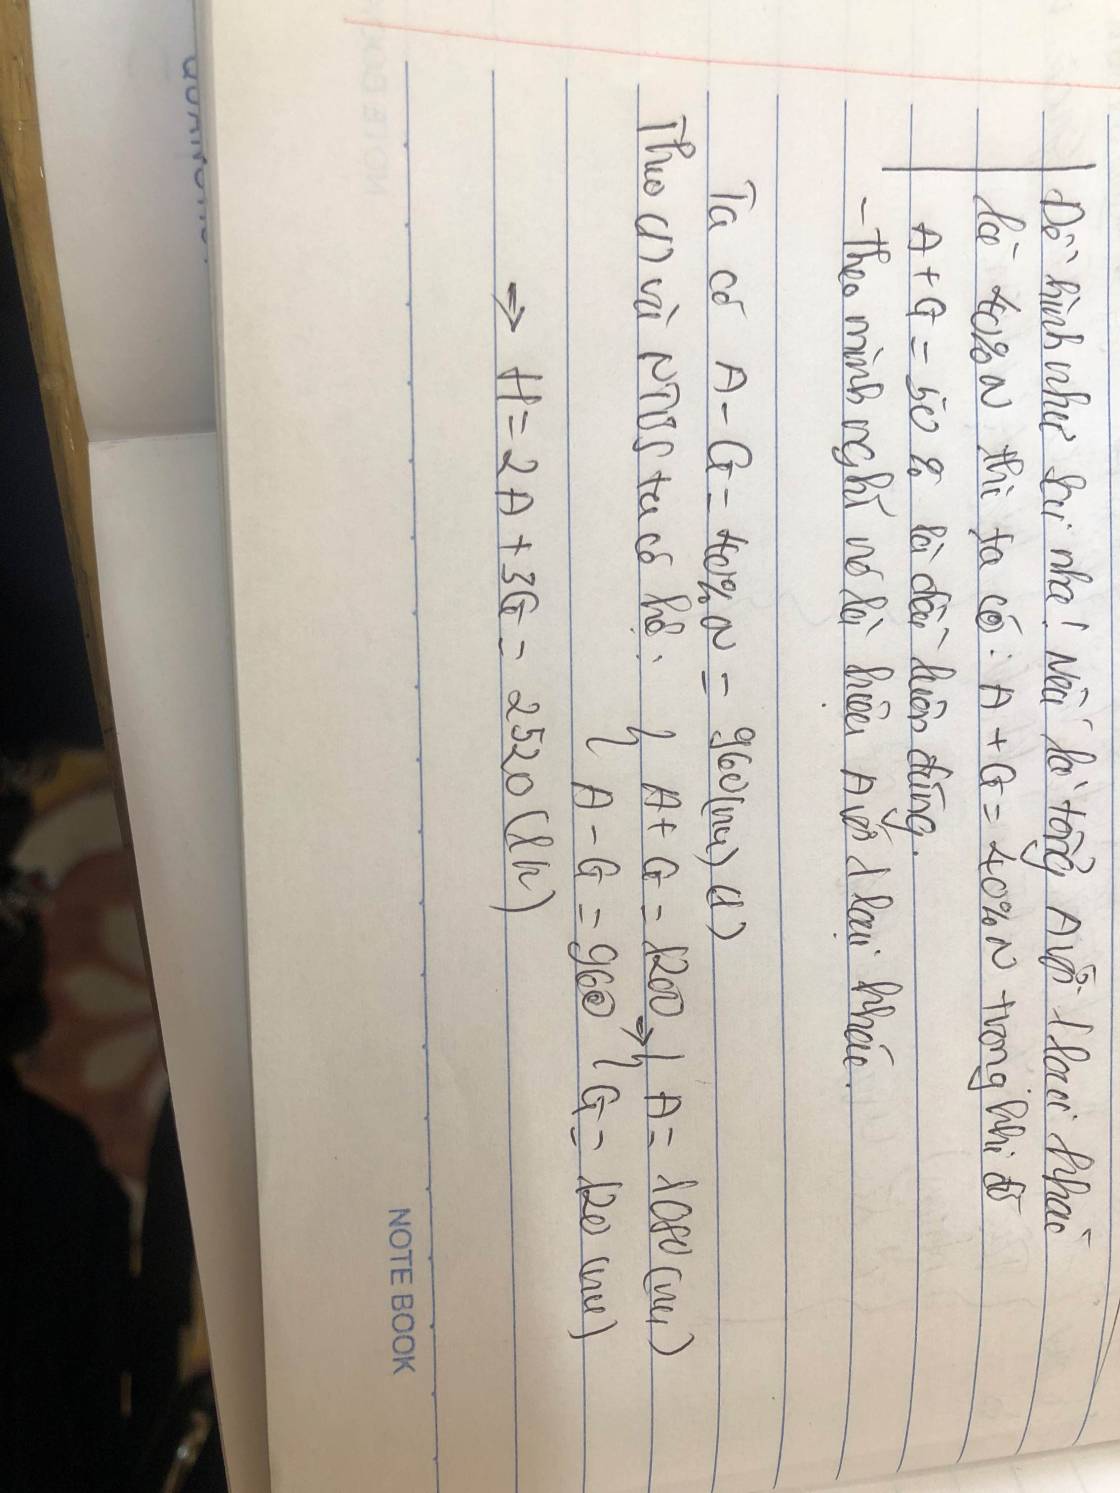 Đề hình như sai nha! Nếu là tổng A với 1 loại khác
là 40%N thì ta có: A + G = 40%N trong khi đó
A + G = 50% là điều luôn đúng.
- Theo mình nghĩ nó là hiệu A với 1 loại khác.
Ta có A - G = 40%N = 960 (nu) (1)
Theo (1) và NTBS ta có hệ: { A + G = 1200 → { A = 1080 (nu)
{ A - G = 960 { G = 120 (nu)
⇒ H = 2A + 3G = 2520 (lk)
NOTE BOOK